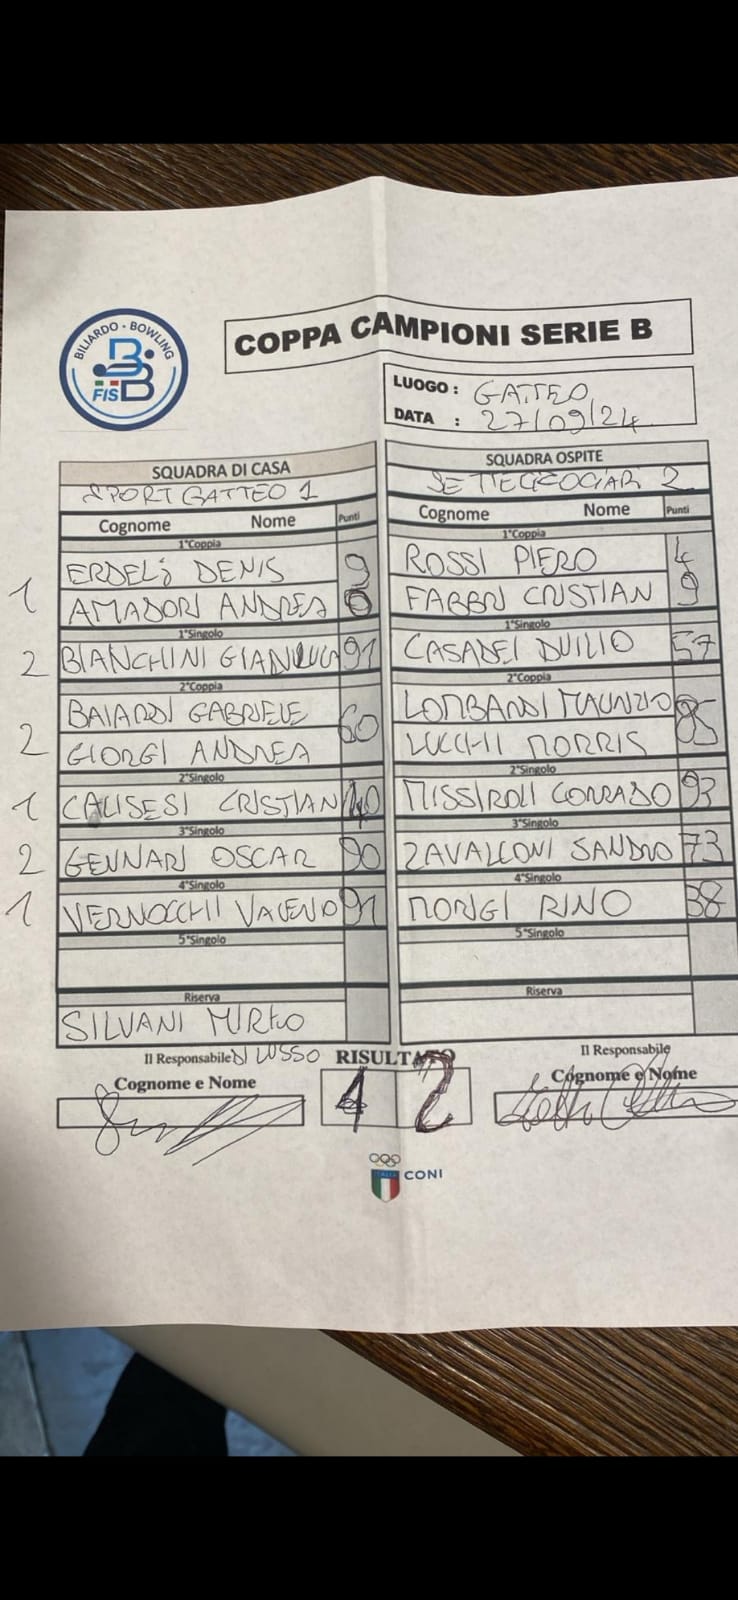 BILIARDO - BOWLING
FISBB
COPPA CAMPIONI SERIE B
LUOGO : GATTEO
DATA : 27/09/24
SQUADRA DI CASA
SPORT GATTEO 1
Cognome Nome Punti
1°Coppia
ERDELJ DENIS 9
1 AMADORI ANDREA 6
1°Singolo
2 BIANCHINI GIANLUCA 91
2°Coppia
BAIARDI GABRIELE 60
2 GIORGI ANDREA
2°Singolo
1 CALISESI CRISTIAN 40
3°Singolo
2 GENNARI OSCAR 90
4°Singolo
1 VERNOCCHI VALENO 91
5°Singolo
Riserva
SILVANI MIRKO
Il Responsabile DI LUSSO
Cognome e Nome
SQUADRA OSPITE
SETTECROCIARI 2
Cognome Nome Punti
1°Coppia
ROSSI PIERO 4
FABBRI CRISTIAN 9
1°Singolo
CASADEI DUILIO 57
2°Coppia
LOMBARDI MAURIZIO 85
LUCCHI MORRIS
2°Singolo
MISSIROLI CORRADO 93
3°Singolo
ZAVALLONI SANDRO 73
4°Singolo
MORIGI RINO 38
5°Singolo
Riserva
Il Responsabile
Cognome e Nome
RISULTATO
4 2
ITALIA CONI